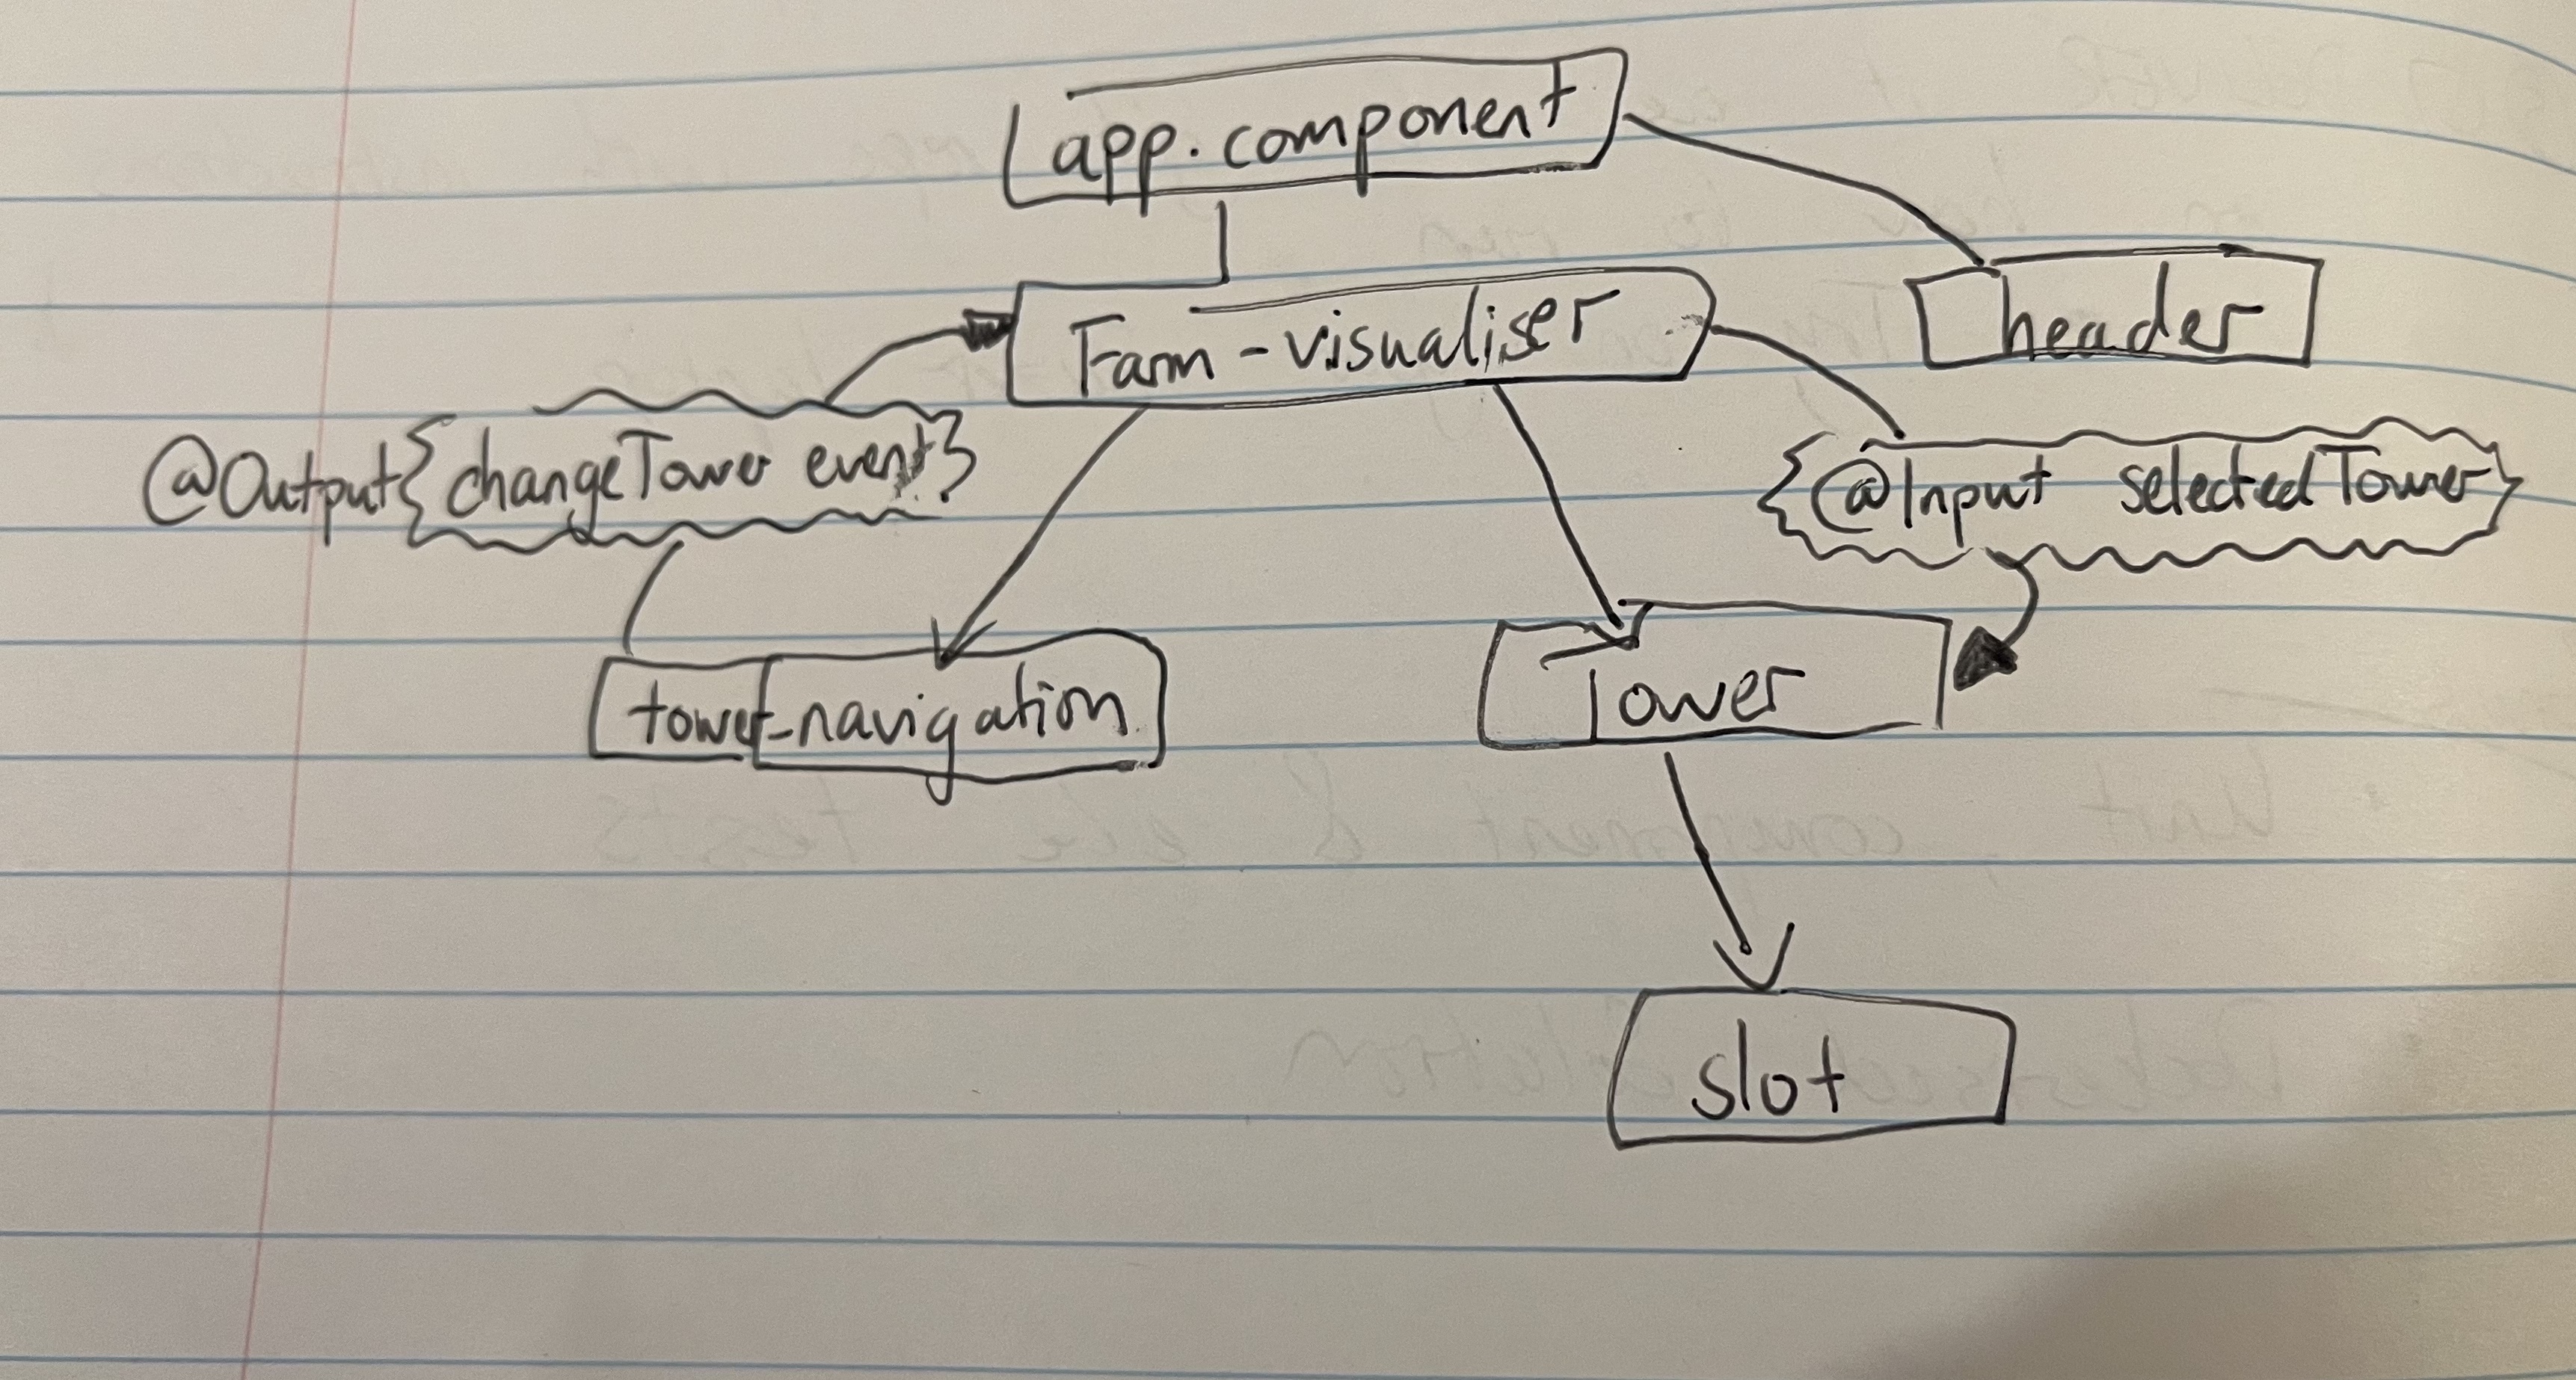 app.component
Farm-visualiser
header
@Output{changeTower event}
{@Input selectedTower}
tower-navigation
Tower
slot